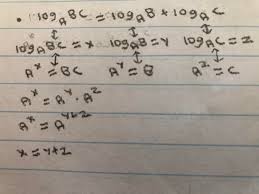 • log_A BC = log_A B + log_A C
log_A BC = x log_A B = Y log_A C = Z
A^x = BC A^Y = B A^Z = C
A^x = A^Y · A^Z
A^x = A^{Y+Z}
x = Y+Z